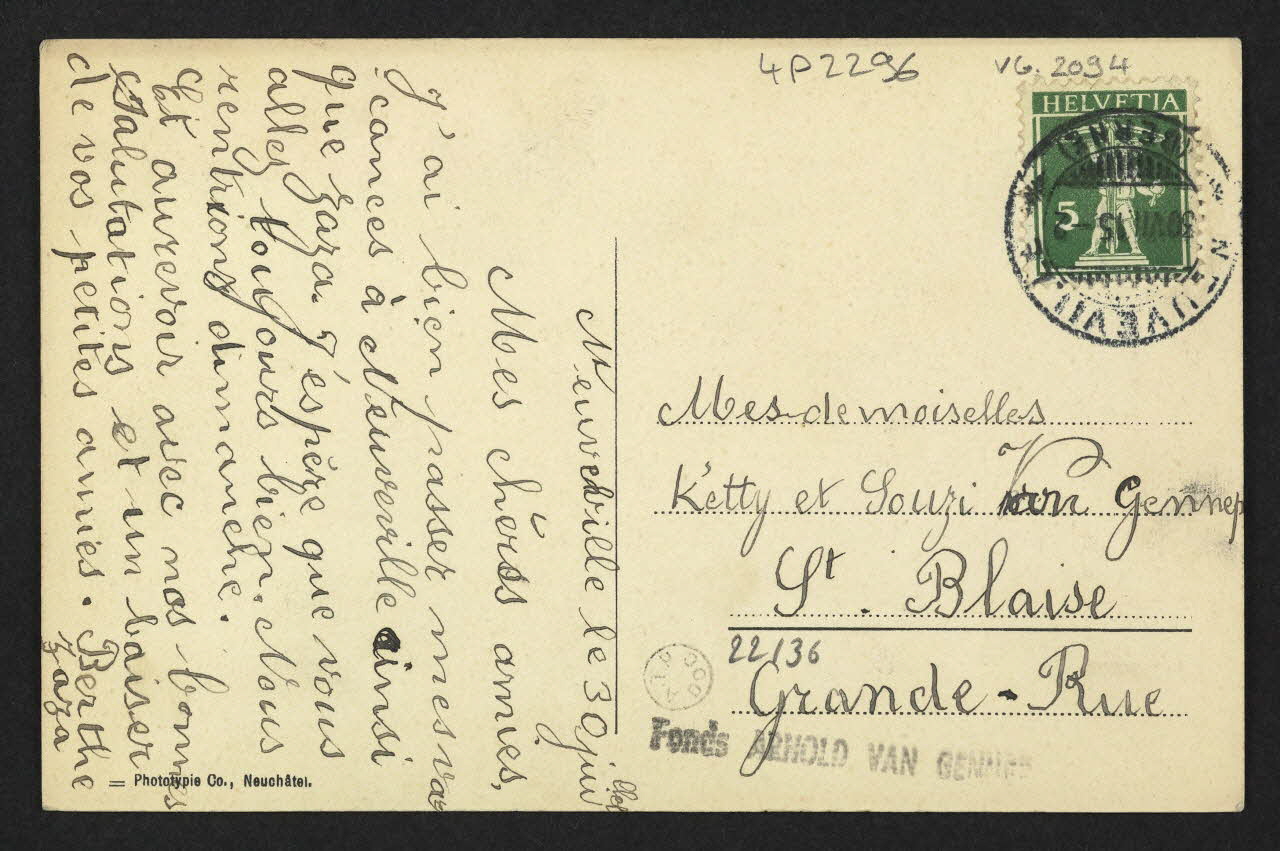 4P2296
VG. 2094
HELVETIA
5
(BERNE)
NEUVEVILLE
Neuveville le 30 juillet
Mes chères amies,
J'ai bien passer mes va
cances à Neuveville ainsi
que Zaza. J'espère que vous
allez toujours bien. Nous
rentrions dimanche.
Et aurevoir avec nos bonnes
Salutations et un baiser
de vos petites amies. Berthe
Zaza
Mes-demoiselles
Ketty et Souzi Van Gennep
St. Blaise
Grande-Rue
22/36
Fonds ARNOLD VAN GENNEP
= Phototypie Co., Neuchâtel.